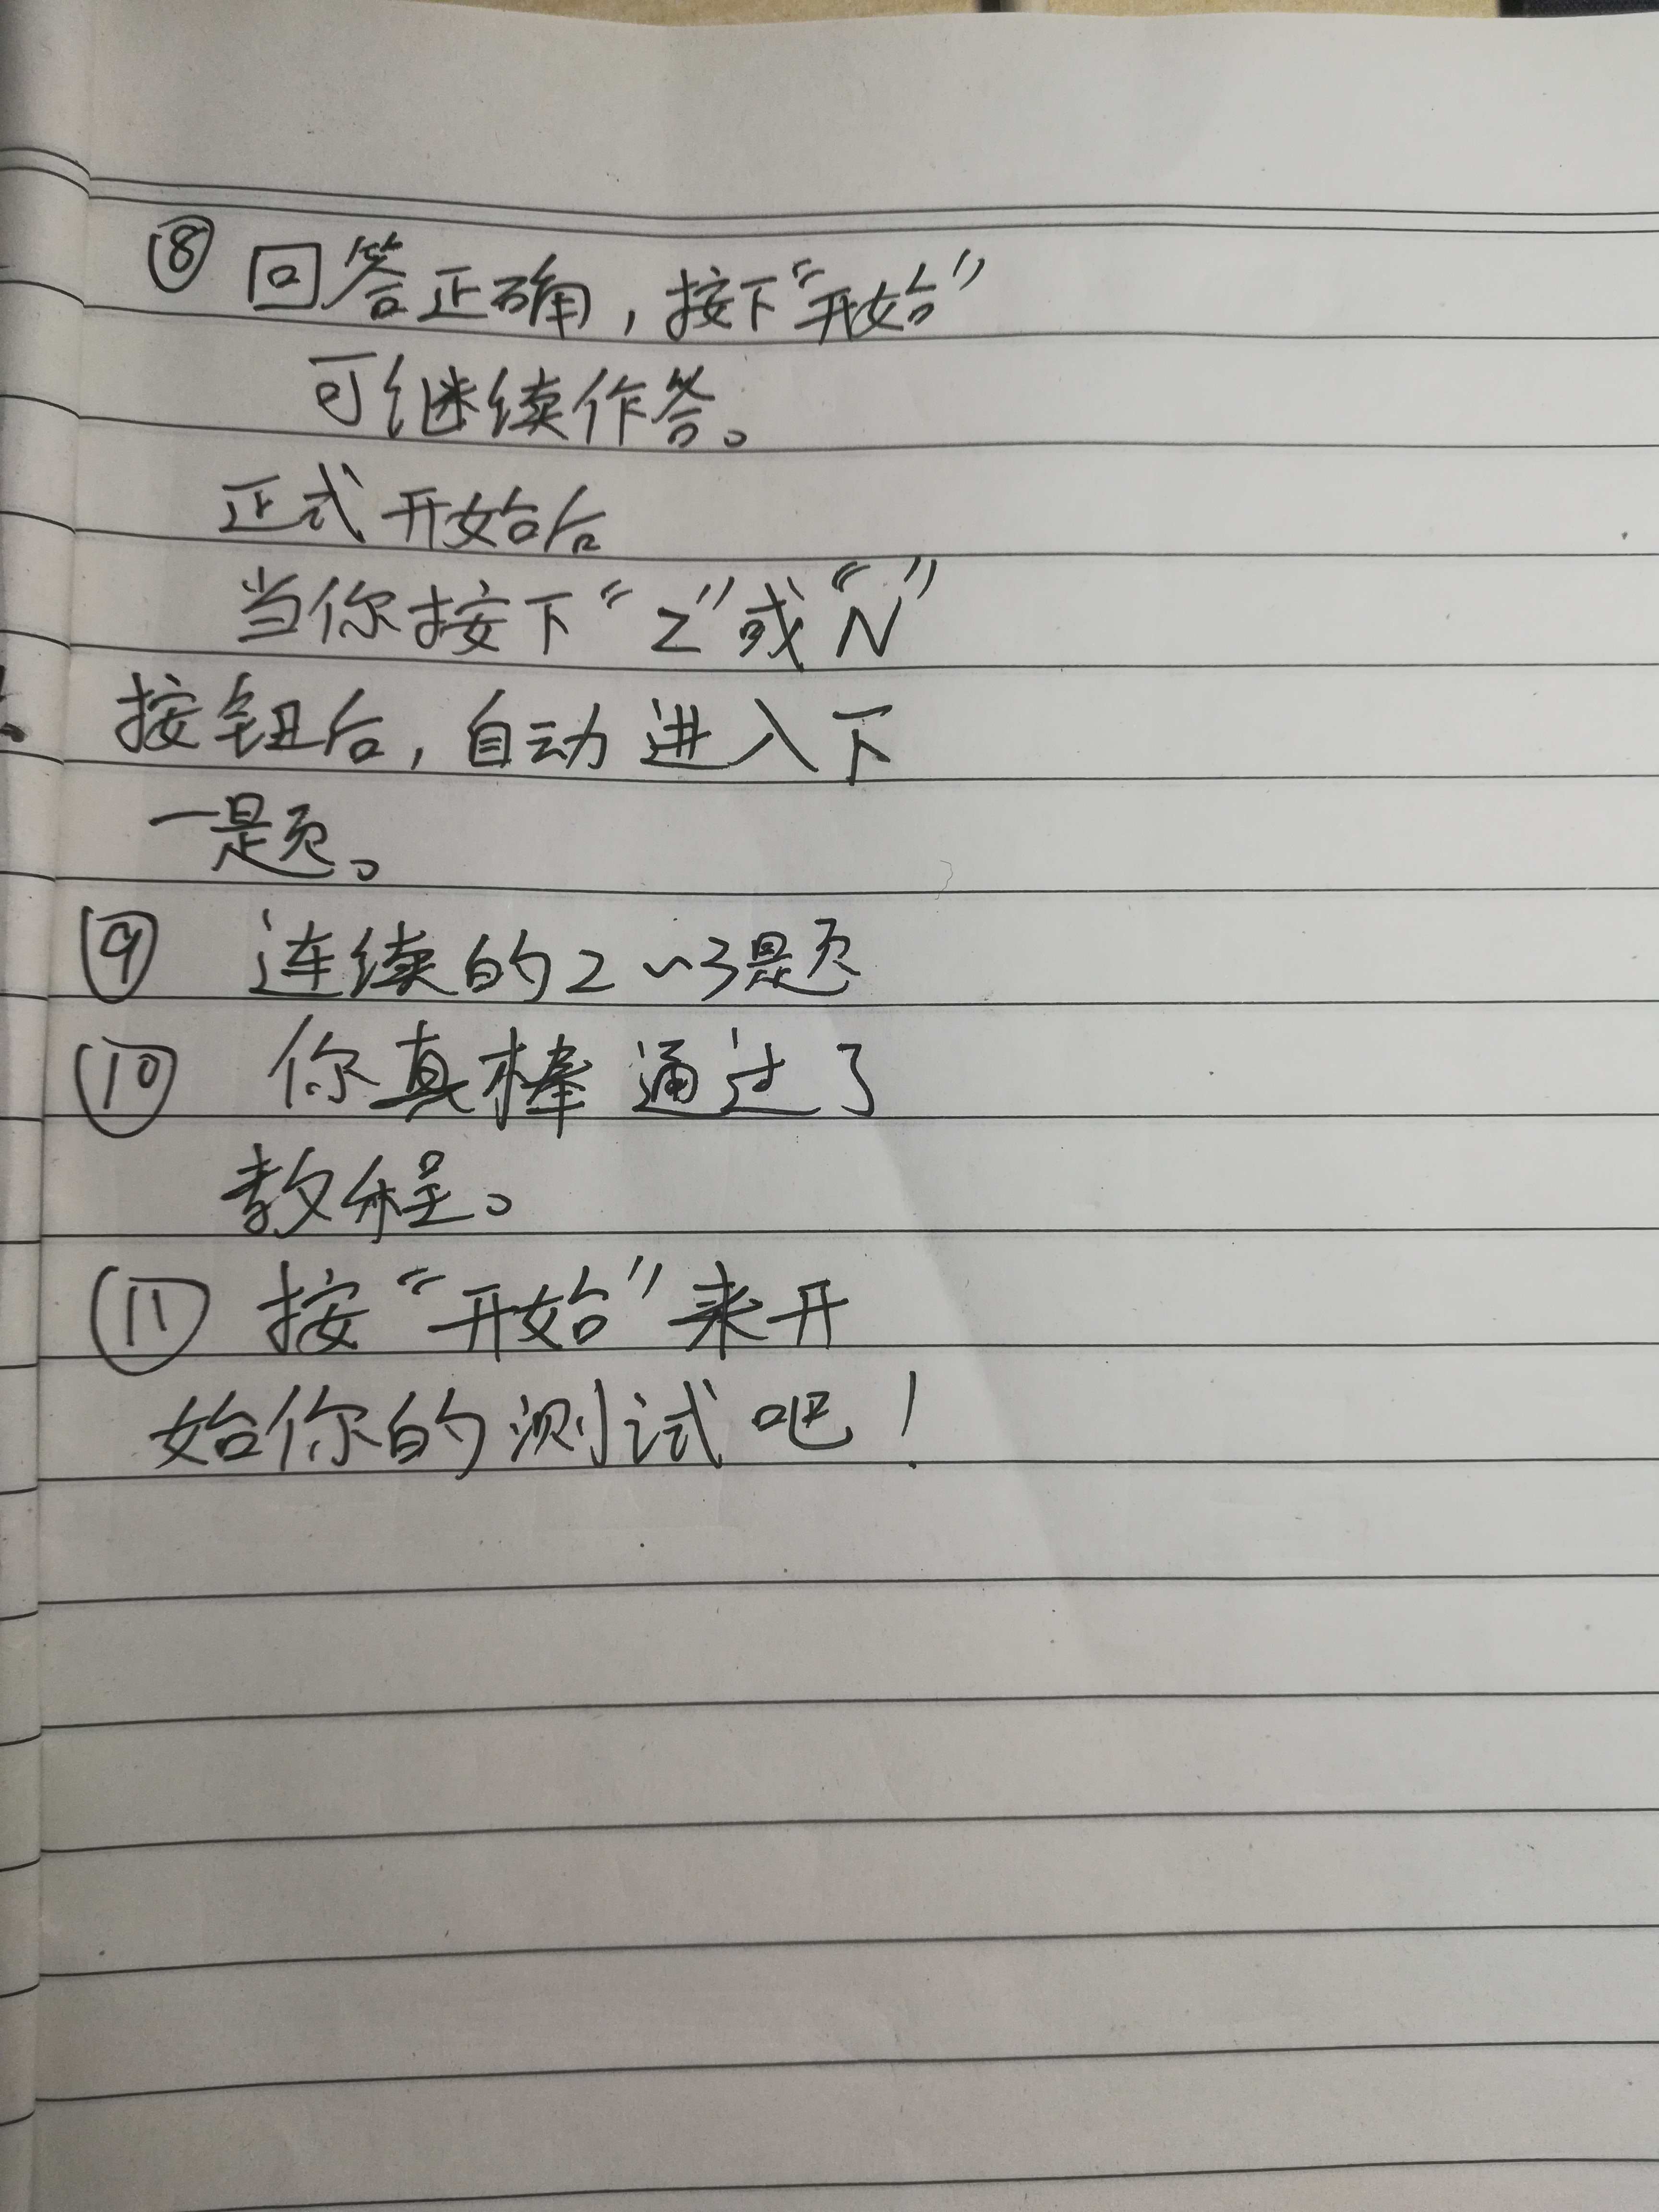 ⑧ 回答正确，按下“开始”
可继续作答。
正式开始后
当你按下“Z”或“N”
按钮后，自动进入下
一题。
⑨ 连续的2~3题
⑩ 你真棒通过了
教程。
⑪ 按“开始”来开
始你的测试吧！